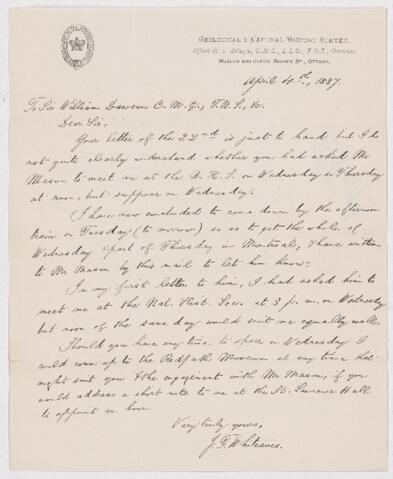 GEOLOGICAL & NATURAL HISTORY SURVEY.
Alfred R. C. Selwyn, C.M.G., L.L.D., F.R.S., Director.
MUSEUM AND OFFICE SUSSEX ST., OTTAWA.
April 4th, 1887.
To Sir William Dawson C.M.G., F.R.S., &c.
Dear Sir,
Your letter of the 22nd is just to hand but I do
not quite clearly understand whether you had asked Mr
Mason to meet me at the N.H.S. on Wednesday or Thursday
at noon, but suppose on Wednesday.
I have now concluded to come down by the afternoon
train on Tuesday (to morrow) so as to get the whole of
Wednesday & part of Thursday in Montreal, & have written
to Mr Mason by this mail to let him know.
In my first letter to him, I had asked him to
meet me at the Nat. Hist. Soc. at 3 p.m. on Wednesday
but noon of the same day would suit me equally well.
Should you have any time to spare on Wednesday I
could come up to the Redpath Museum at any time that
might suit you & the engagement with Mr Mason, if you
would address a short note to me at the St. Lawrence Hall
to appoint an hour.
Very truly yours,
J. F. Whiteaves.